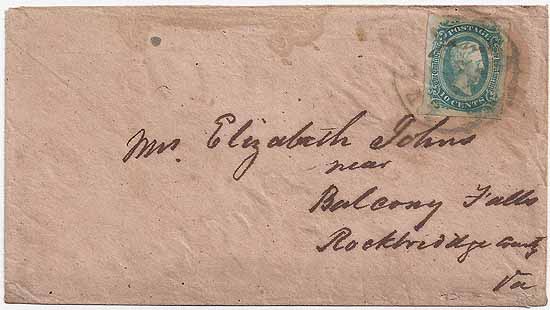 POSTAGE
10 CENTS
Mrs. Elizabeth Johns
near
Balcony Falls
Rockbridge County
Va